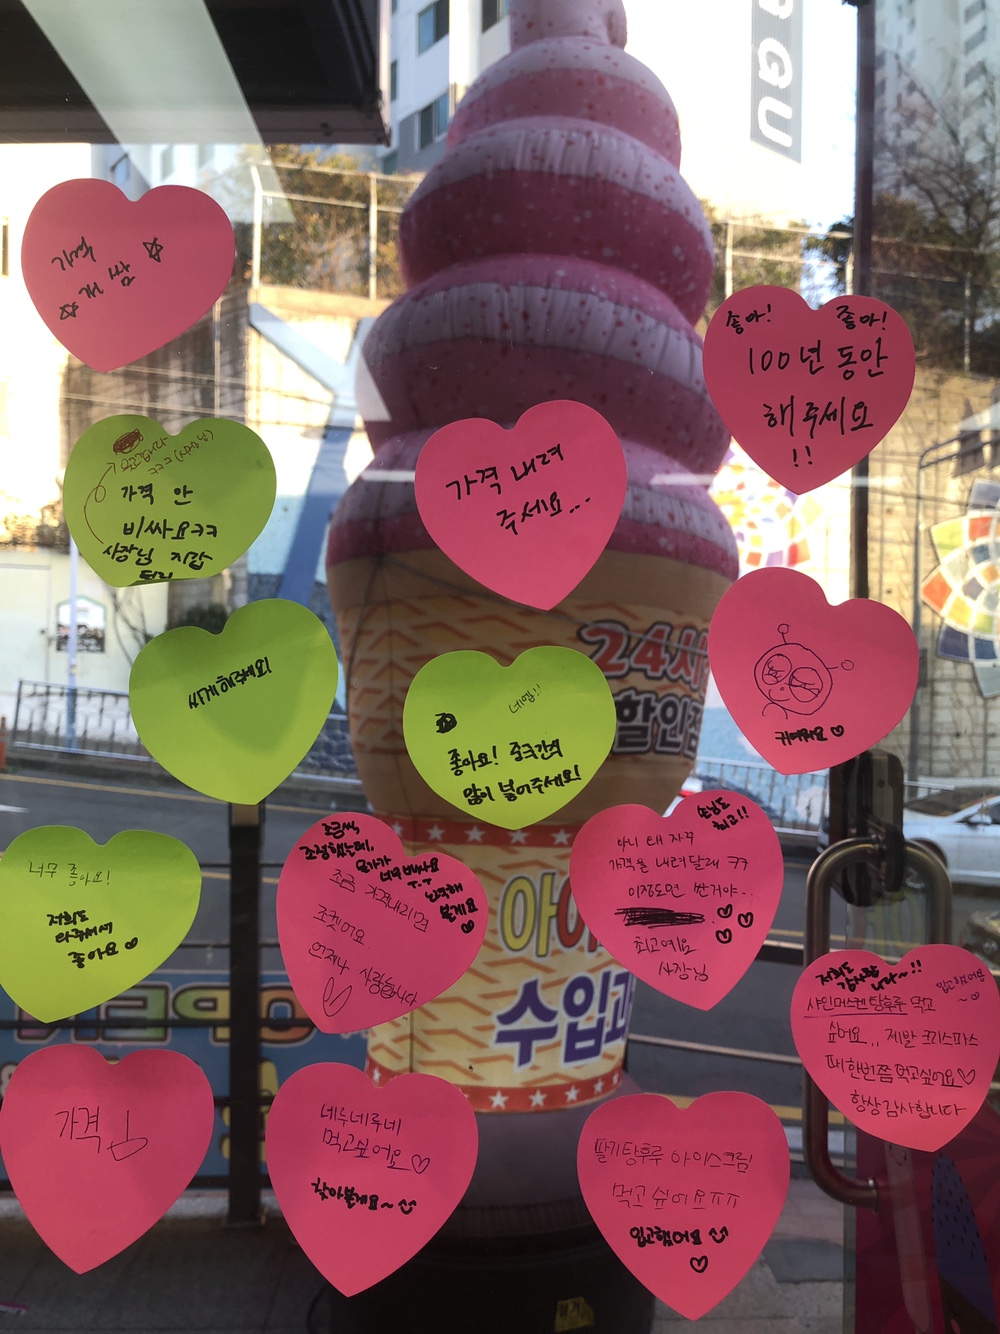 가격
개쌈
좋아! 좋아!
100년 동안
해주세요
!!
ㅋㅋㅋ(사장님)
가격 안
비싸요ㅋㅋ
사장님 지갑
가격 내려
주세요..
24시
할인점
싸게해주세요!
네엡!!
좋아요! 중국간식
많이 넣어주세요!
귀여워요♡
너무 좋아요!
저희도
와주셔서
좋아요♡
조금씩
조정했는데,
물가가
너무비싸요
ㅜ.ㅜ
노력해
볼게요
♡
조금 가격내리면
조켓어요.
언제나 사랑합니다
손님도
최고!!
아니 왜 자꾸
가격을 내려달래 ㅋㅋ
이정도면 싼거야..
최고예요
사장님
아이
수입과
저희도
감사합
니다~!!
입고했어요
샤인머스켓탕후루 먹고
싶어요.. 제발 크리스마스
때한번쯤먹고싶어요♡
항상감사합니다
OPEN
가격
네루네루네
먹고싶어요♡
찾아볼게요~
딸기탕후루 아이스크림
먹고싶어요ㅠㅠ
입고했어요
♡